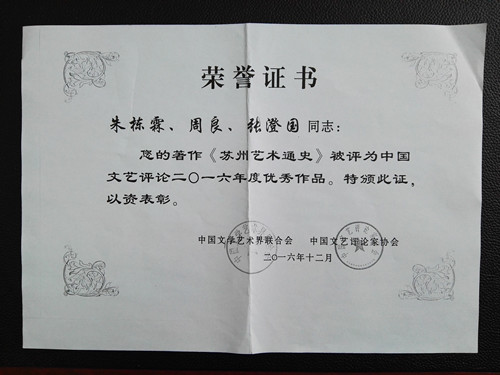 荣誉证书
朱栋霖、周良、张澄国同志：
您的著作《苏州艺术通史》被评为中国
文艺评论二〇一六年度优秀作品。特颁此证，
以资表彰。
中国文学艺术界联合会 中国文艺评论家协会
二〇一六年十二月